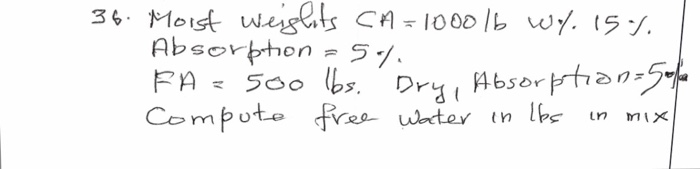 36. Moist weights CA = 1000 lb w%. 15%.
Absorption = 5%.
FA = 500 lbs. Dry, Absorption=5%
Compute free water in lbs in mix